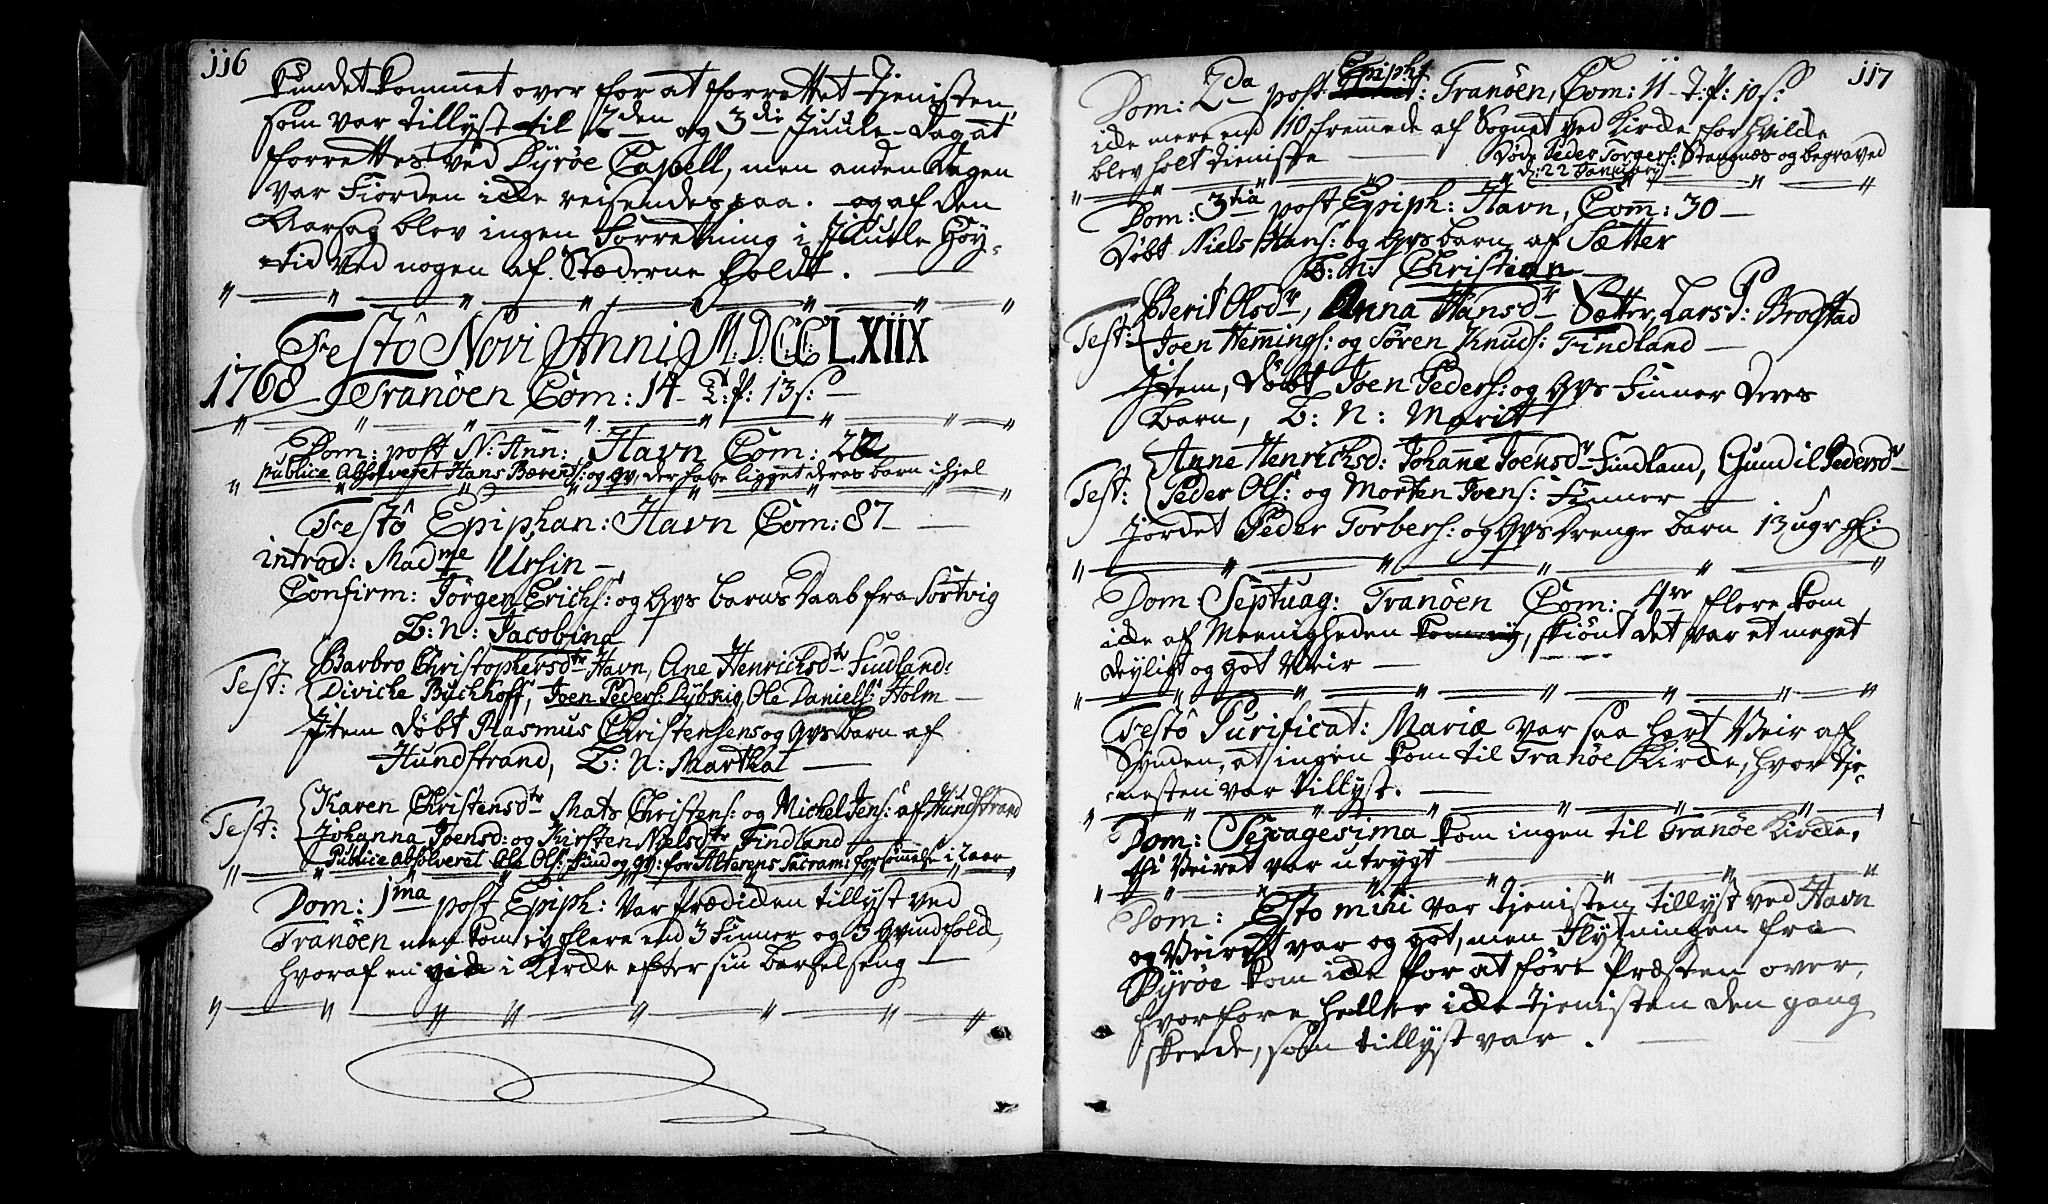 116
Kundet kommet over for at forrettet Tjenisten
som var tillyst til 2den og 3die Juule-Dag at
forrettes ved Dyrøe Capell, men anden Dagen
var Fiorden icke reisendes paa. og af den
Aarsag blev ingen Forretning i Juule Høy-
tid ved nogen af Stæderne holdt.
Festô Novi Anni M:D:C:C:LXIIX
1768 Tranöen Com: 14 T:f: 13 s:
Dom: post N: Ann: Havn Com: 22
publice Absolveret Hans Bærents: og Qv, der have ligget deres barn ihjel
Festô Epiphan: Havn Com: 87
introd: Madme Ursin
Confirm: Jörgen Erichs: og Qvs barns Daab fra Sörtvig
B: N: Jacobina
Test: Barbro Christophersdtr Havn, Ane Henrichsdtr Findland:
Diviche Buchhoff, Joen Peders: Dybvig, Ole Daniels: Holm
Item Döbt Rasmus Christensens og Qvs barn af
Hundstrand, B: N: Martha
Test: Karen Christensdtr Mats Christens: og Michel Jens: af Hundstrand
Johanna Joensd: og Kirsten Nielsdtr Findland
Publice Absolveret Ole Ols: Find og Qv: for Alterens Sacram: forsömmelse i 2 aar
Dom: 1ma post Epiph: var Prædicken tillyst ved
Tranöen men kom ey flere end 3 Finner og 3 Qvindfolck,
hvoraf en gick i Kircke efter sin barselseng
117
Dom: 2da post Epiph: Tranöen, Com: 11 T:f: 10 s:
icke mere end 10 fremmede af Sognet ved Kircke for hvilcke
blev holt Tieniste
Döde Peder Torgers: Stangnæs og begraved
d: 22 January
Dom: 3tia post Epiph: Havn, Com: 30
Döbt Niels Hans: og Qvs barn af Sætter
B: N: Christian
Test: Berit Olsdtr, Anna Hansdtr Sætter, Lars P: Brodstad
Joen Hemmings: og Sören Knuds: Findland
Item, Döbt Joen Peders: og Qvs Finner deres
barn, B: N: Marit
Test: Anne Henrichsd: Johanne Joensdtr Findland, Gundil Pedersdtr
Peder Ols: og Morten Joens: Finner
Jordet Peder Torbers: og Qvs Drenge barn 13 ugr gl:
Dom: Septuag: Tranöen Com: 4re flere kom
icke af Meenigheden kom ey, skiönt det var et meget
deyligt og got Veir
Festô Purificat: Mariæ var saa hart Veir af
Synden, at ingen kom til Tranöe Kircke, hvor tje-
nesten var tillyst.
Dom: Sexagesima kom ingen til Tranöe Kircke,
thi Veiret var utrygt
Dom: Esto mihi var tjenisten tillyst ved Havn
og Veiret var og got, men Flytningen fra
Dyröe kom icke for at före Præsten over,
hvorfore heller icke tjenisten den gang
skeede, som tillyst var.